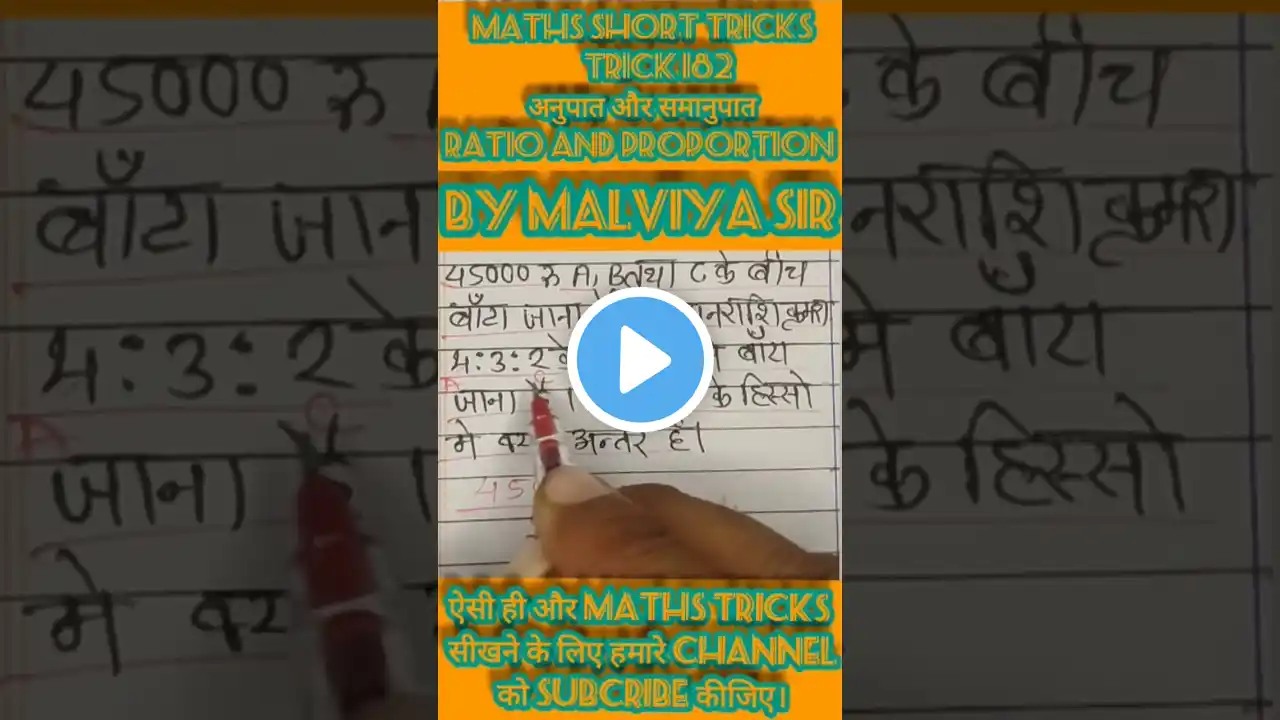 MATHS SHORT TRICKS
TRICK 182
अनुपात और समानुपात
RATIO AND PROPORTION
BY MALVIYA SIR
45000 रु A, B तथा C के बीच
बाँटा जाना नराशि क्रमश
4:3:2 के में बाँटा
जाना के हिस्सो
मे अन्तर है।
45
ऐसी ही और MATHS TRICKS
सीखने के लिए हमारे CHANNEL
को SUBCRIBE कीजिए।